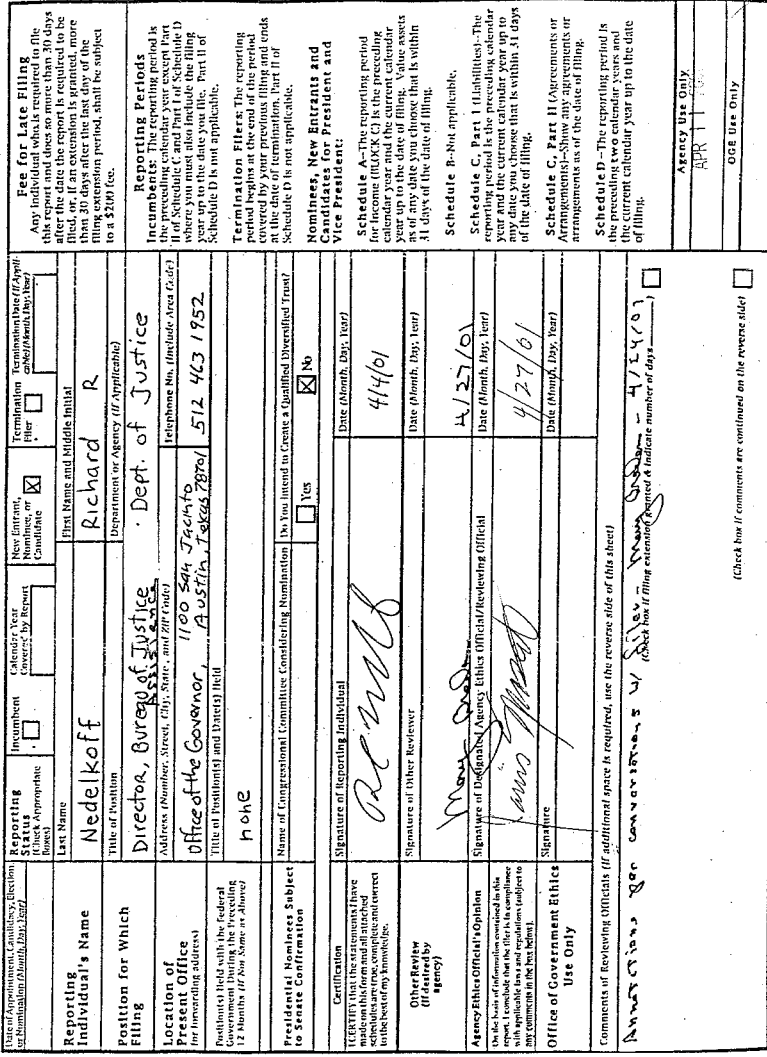 Date of Appointment, Candidacy, Election, or Nomination (Month, Day, Year)
Reporting Status
(Check Appropriate Boxes)
Incumbent
Calendar Year Covered by Report
New Entrant, Nominee, or Candidate
X
Termination Filer
Termination Date (If Applicable) (Month, Day, Year)
Reporting Individual's Name
Last Name
Nedelkoff
First Name and Middle Initial
Richard R
Position for Which Filing
Title of Position
Director, Bureau of Justice Assistance
Department or Agency (If Applicable)
Dept. of Justice
Location of Present Office
(or forwarding address)
Address (Number, Street, City, State, and ZIP Code)
Office of the Governor, 1100 San Jacinto
Austin, Texas 78701
Telephone No. (Include Area Code)
512 463 1952
Position(s) Held with the Federal Government During the Preceding 12 Months (If Not Same as Above)
Title of Position(s) and Date(s) Held
none
Presidential Nominees Subject to Senate Confirmation
Name of Congressional Committee Considering Nomination
Do You Intend to Create a Qualified Diversified Trust?
Yes
X No
Certification
I CERTIFY that the statements I have made on this form and all attached schedules are true, complete and correct to the best of my knowledge.
Signature of Reporting Individual
Date (Month, Day, Year)
4/4/01
Other Review
(If desired by agency)
Signature of Other Reviewer
Date (Month, Day, Year)
4/27/01
Agency Ethics Official's Opinion
On the basis of information contained in this report, I conclude that the filer is in compliance with applicable laws and regulations (subject to any comments in the box below).
Signature of Designated Agency Ethics Official/Reviewing Official
Date (Month, Day, Year)
4/27/01
Office of Government Ethics
Use Only
Signature
Date (Month, Day, Year)
Comments of Reviewing Officials (If additional space is required, use the reverse side of this sheet)
(Check box if filing extension granted & indicate number of days ____)
per conversations w/ filer - Mary - 4/24/01
(Check box if comments are continued on the reverse side)
Fee for Late Filing
Any individual who is required to file
this report and does so more than 30 days
after the date the report is required to be
filed, or, if an extension is granted, more
than 30 days after the last day of the
filing extension period, shall be subject
to a $200 fee.
Reporting Periods
Incumbents: The reporting period is
the preceding calendar year except Part
II of Schedule C and Part I of Schedule D
where you must also include the filing
year up to the date you file. Part II of
Schedule D is not applicable.
Termination Filers: The reporting
period begins at the end of the period
covered by your previous filing and ends
at the date of termination. Part II of
Schedule D is not applicable.
Nominees, New Entrants and
Candidates for President and
Vice President:
Schedule A--The reporting period
for income (BLOCK C) is the preceding
calendar year and the current calendar
year up to the date of filing. Value assets
as of any date you choose that is within
31 days of the date of filing.
Schedule B--Not applicable.
Schedule C, Part I (Liabilities)--The
reporting period is the preceding calendar
year and the current calendar year up to
any date you choose that is within 31 days
of the date of filing.
Schedule C, Part II (Agreements or
Arrangements)--Show any agreements or
arrangements as of the date of filing.
Schedule D--The reporting period is
the preceding two calendar years and
the current calendar year up to the date
of filing.
Agency Use Only
APR 11
OGE Use Only